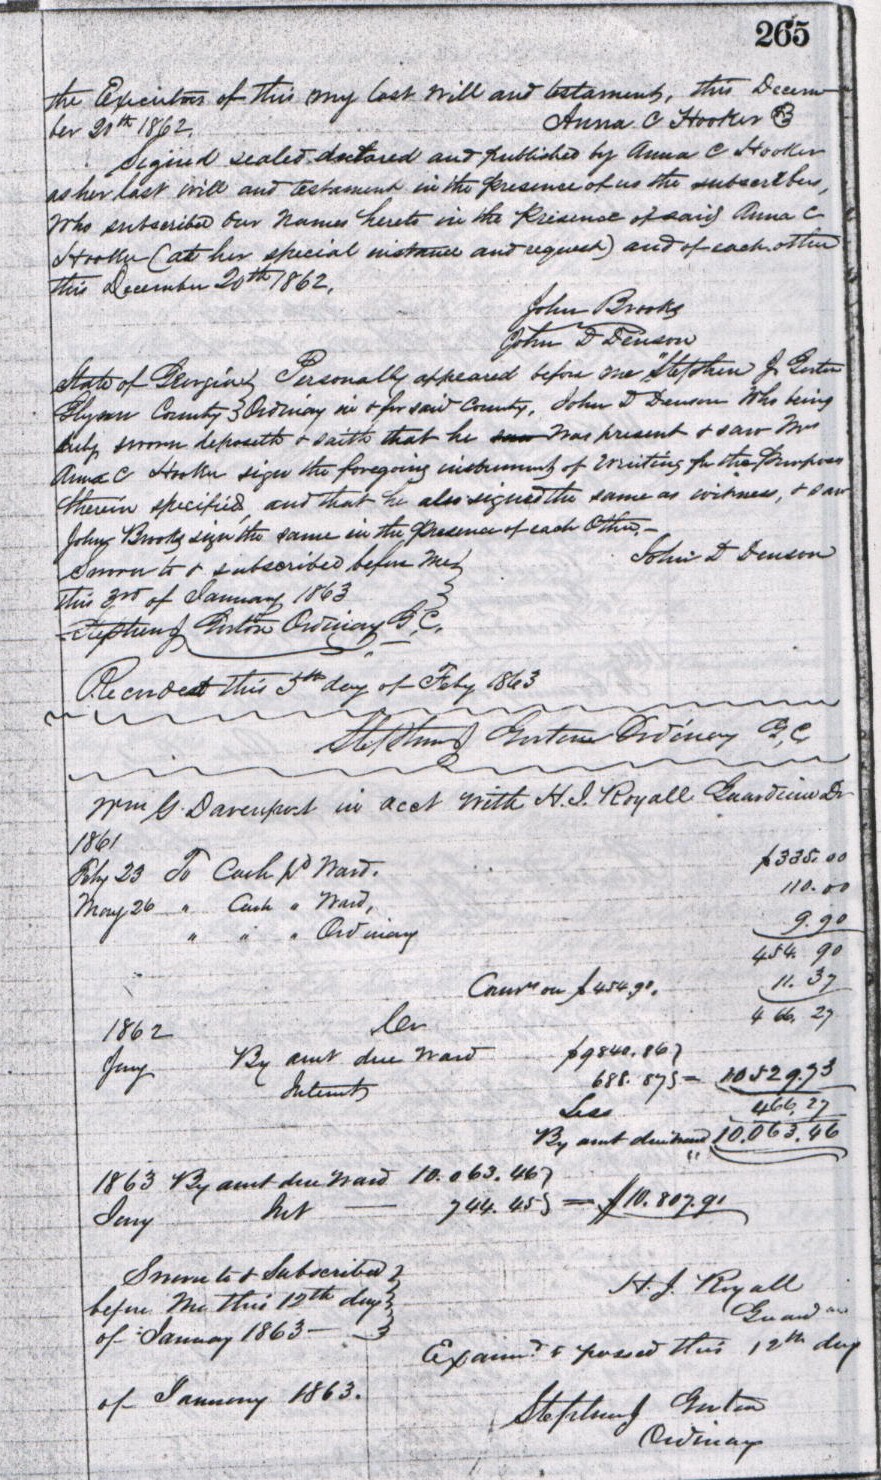 265
the Executors of this my last will and testament, this Decem-
ber 20th 1862. Anna C Hooker
Signed sealed declared and published by Anna C Hooker
as her last will and testament in the presence of us the subscribers,
who subscribed our names hereto in the presence of said Anna C
Hooker (at her special instance and request) and of each other
this December 20th 1862.
John Brooks
John D Denson
State of Georgia } Personally appeared before me, Stephen J Gorton
Glynn County } Ordinary in & for said County, John D Denson who being
duly sworn deposeth & saith that he saw was present & saw Mrs
Anna C Hooker sign the foregoing instrument of writing for the purposes
therein specified, and that he also signed the same as witness, & saw
John Brooks sign the same in the presence of each other.-
Sworn to & subscribed before me } John D Denson
this 3rd of January 1863 }
Stephen J Gorton Ordinary G,C,
Recorded this 5th day of Feby 1863
Stephen J Gorton Ordinary G,C,
Wm G. Davenport in acct with H. J. Royall Guardian Dr
1861
Feby 23 To Cash pd Ward. $335.00
May 26 " Cash " Ward, 110.00
" " " Ordinary 9.90
454.90
Comrs on $454.90. 11.37
466.27
1862 Cr
Jany By amt due Ward $9840.86 }
Interest 688.87 } = 10529.73
Less 466.27
By amt due Ward 10.063.46
1863 By amt due Ward 10.063.46 }
Jany Int — 744.45 } = $10.807.91
Sworn to & Subscribed }
before me this 12th day } H. J. Royall
of January 1863 — } Guardian
Examd & passed this 12th day
of January 1863.
Stephen J Gorton
Ordinary